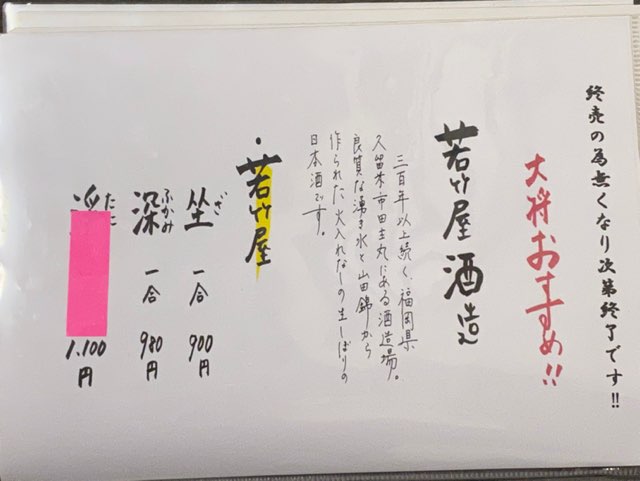 終売の為無くなり次第終了です!!
大将おすすめ!!
若竹屋酒造
三百年以上続く、福岡県
久留米市田主丸にある酒造場。
良質な湧き水と山田錦から
作られた火入れなしの生しぼりの
日本酒です。
・若竹屋
坐 ざ 一合 900円
深 ふかみ 一合 980円
1,100円